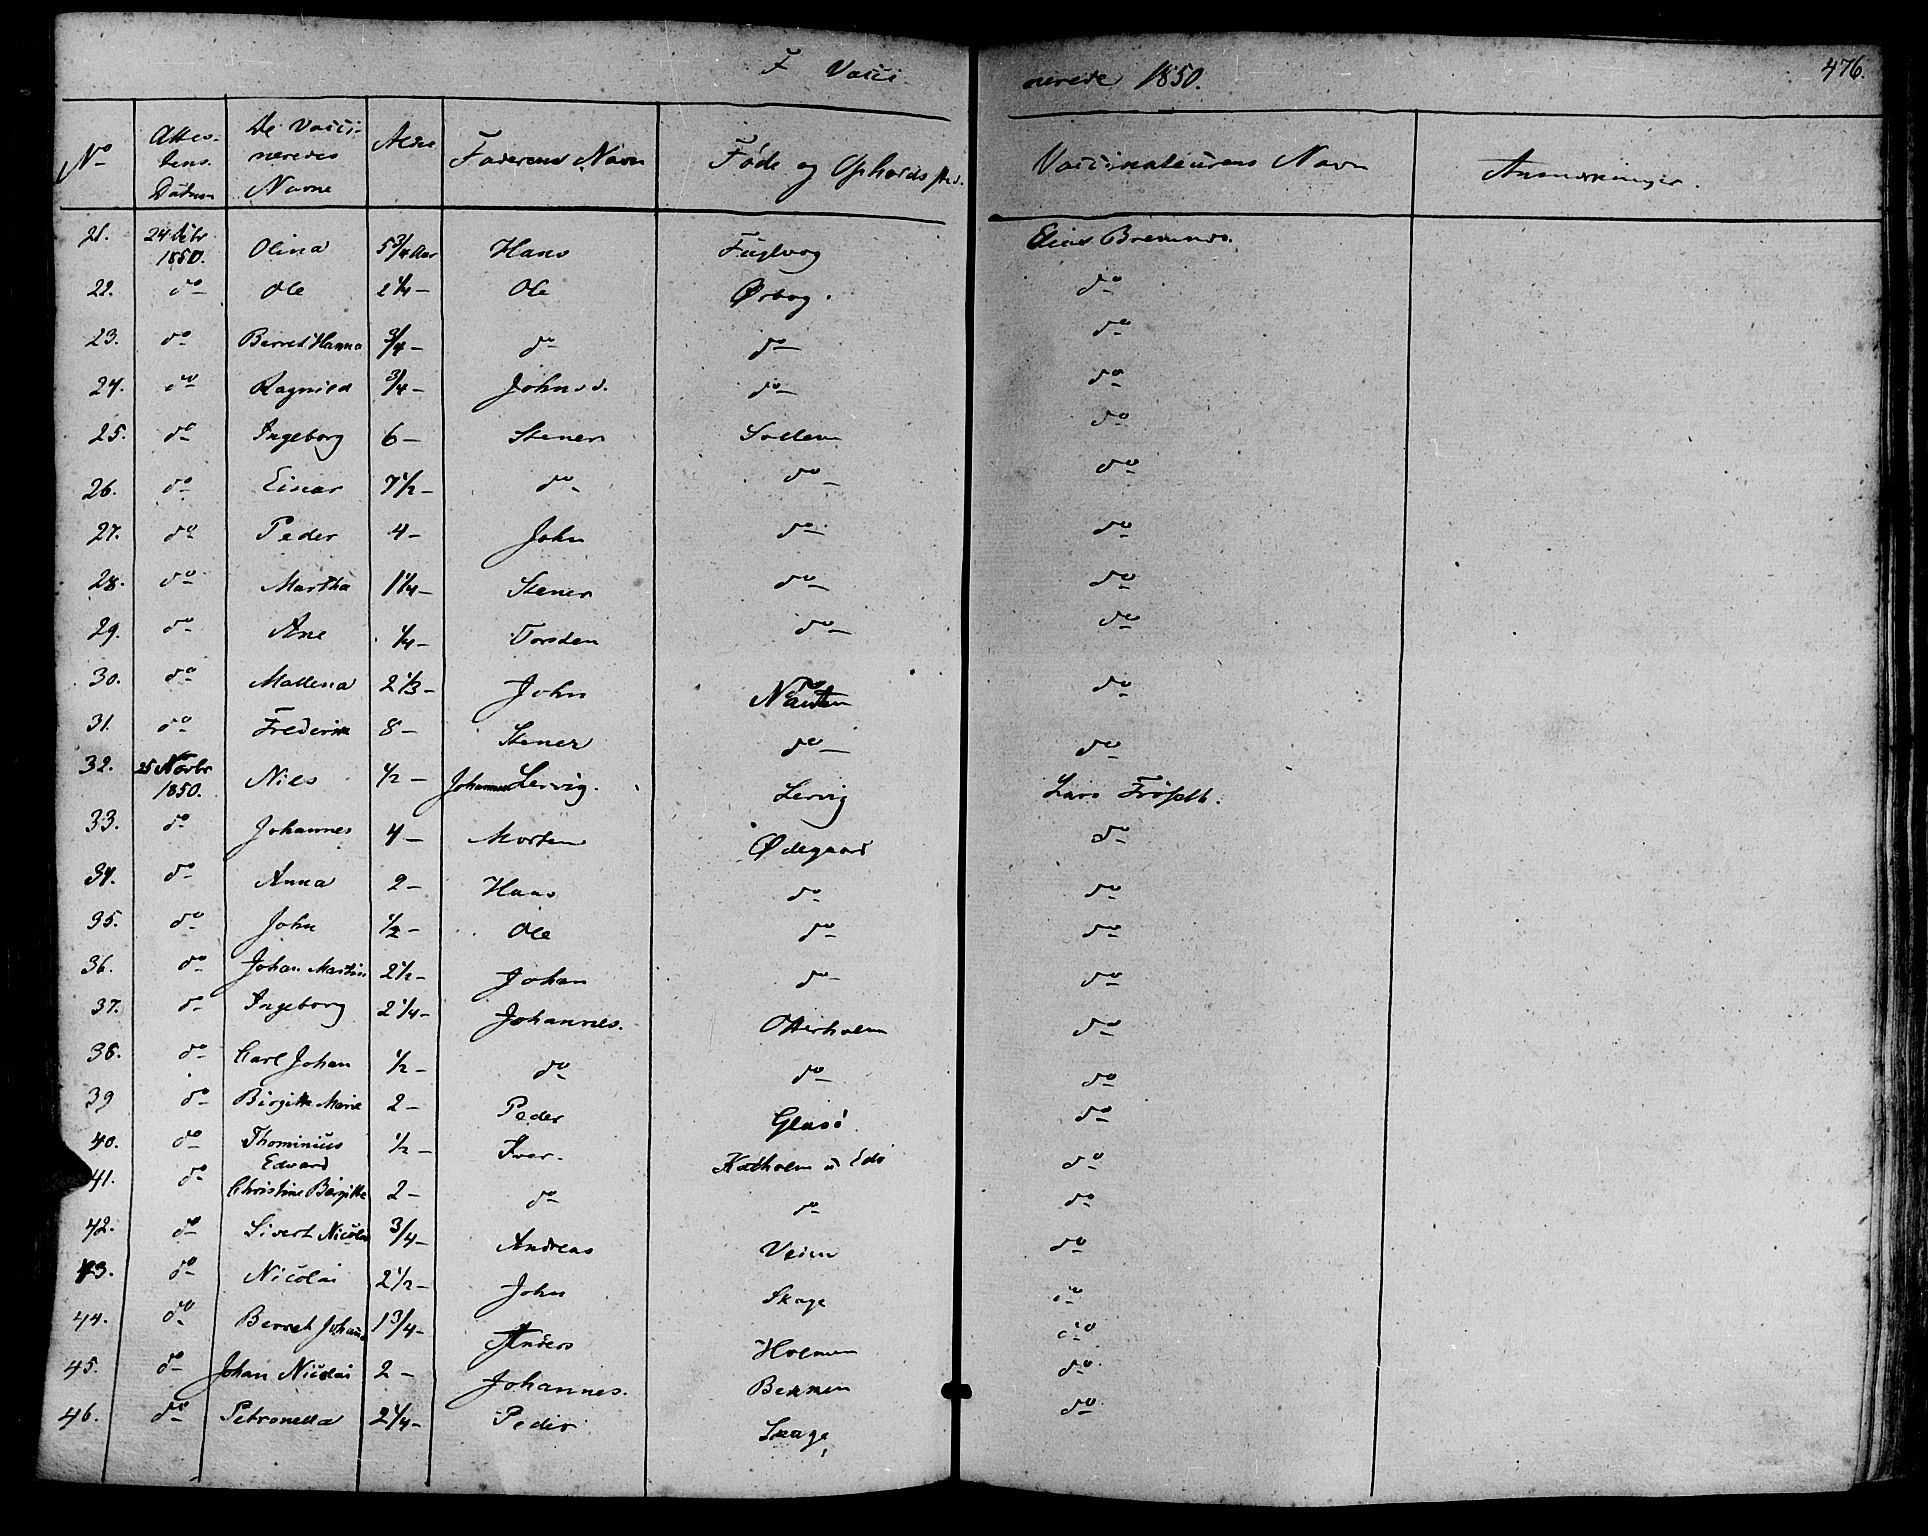 F Vacci nerede 1850. 476.
No Attes- tens. Datum De Vacci- neredes Navne Alder Faderens Navn Føde og Opholds sted. Vaccinateurens Navn Anmærkninger.
21. 24 1850. Olina 5 3/4 Aar Hans Fuglvog Elias Bremnes.
22. do Ole 2 1/4 - Ole Ørbog. do
23. do Berret Hanna 3/4 - do do do
24. do Ragnild 3/4 - John do do
25. do Ingeborg 6 - Stener Sollem do
26. do Einar 7 1/2 - do do do
27. do Peder 4 - John do do
28. do Martha 1 1/4 - Stener do do
29. do Ane 1/4 - Torsten do do
30. do Mallena 2 1/3 - John Nausten do
31. do Frederik 8 - Stener do do
32. 25 Novbr 1850. Nils 1/2 - Johannes Lervig. Lervig Lars
33. do Johannes 4 - Morten Ødegaard do
34. do Anna 2 - Hans do do
35. do John 1/2 - Ole do do
36. do Johan Martin 2 1/2 - Johan do do
37. do Ingeborg 2 1/4 - Johannes. Otterholm do
38. do Carl Johan 1/2 - do do do
39 do Birgitte Marie 2 - Peder Glasö do
40. do Thominius Edvard 1/2 - Iver. Kadholm do
41. do Christine Birgitte 2 - do do do
42. do Sivert Nicolai 3/4 - Andreas Veien do
43. do Nicolai 2 1/2 - John Skage do
44. do Berret Johanna 1 3/4 - Anders Holmen do
45. do Johan Nicolai 2 - Johannes. Bekken do
46. do Petronella 2 1/4 - Peder Skage, do